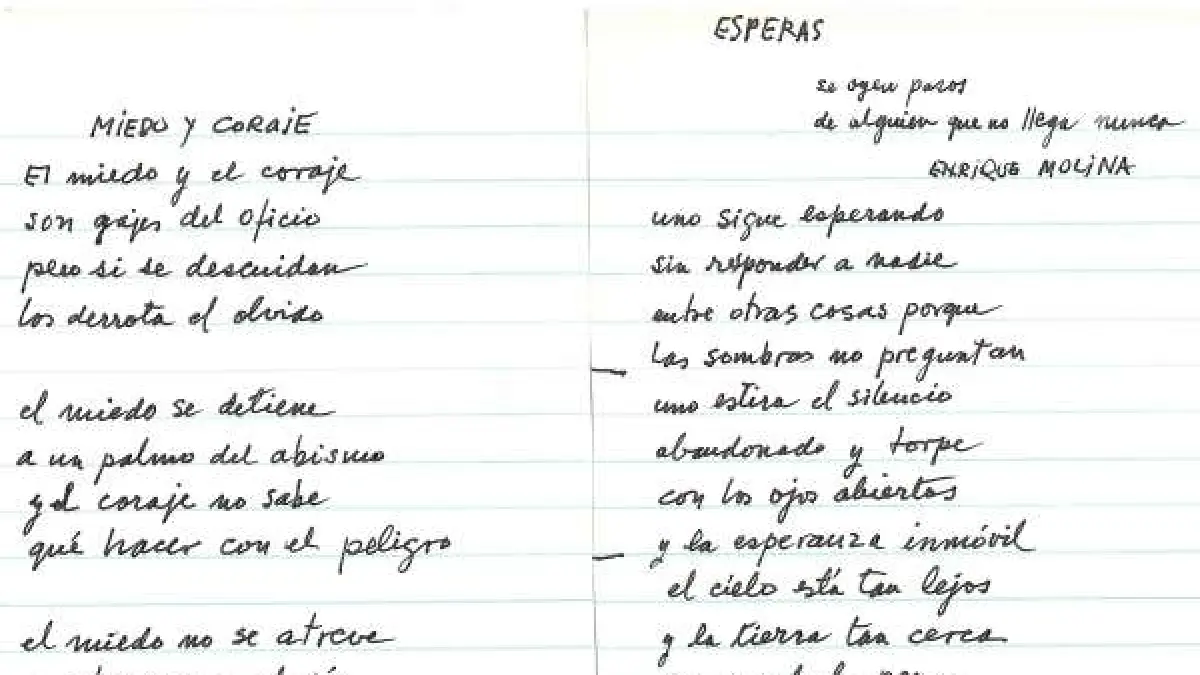 MIEDO Y CORAJE
El miedo y el coraje
son gajes del oficio
pero si se descuidan
los derrota el olvido
el miedo se detiene
a un palmo del abismo
y el coraje no sabe
qué hacer con el peligro
el miedo no se atreve
ESPERAS
se oyen pasos
de alguien que no llega nunca
ENRIQUE MOLINA
uno sigue esperando
sin responder a nadie
entre otras cosas porque
las sombras no preguntan
uno estira el silencio
abandonado y torpe
con los ojos abiertos
y la esperanza inmóvil
el cielo está tan lejos
y la tierra tan cerca